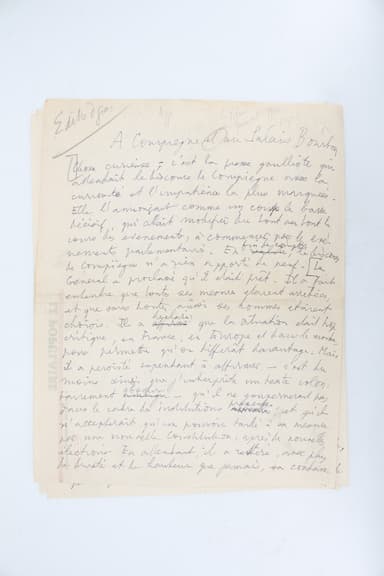 Edito Dgo.
A Compiègne et au Palais Bourbon
Chose curieuse, c'est la presse gaulliste qui
attendait le discours de Compiègne avec la
curiosité et l'impatience la plus marquée.
Elle l'annonçait comme un coup de barre
décisif, qui allait modifier du tout au tout le
cours des évènements, à commencer par les
parlementaires. En fin de compte, le discours
de Compiègne n'a rien apporté de neuf. Le
Général a proclamé qu'il était prêt. Il a fait
entendre que toutes ses mesures étaient arrêtées,
et que sans doute aussi ses hommes étaient
choisis. Il a déclaré que la situation était trop
critique, en France, en Europe et dans le monde
pour permettre qu'on différât davantage. Mais
il a persisté cependant à affirmer - c'est du
moins ainsi que j'interprète un texte volon-
tairement - qu'il ne gouvernerait pas
dans le cadre des institutions présentes et qu'il
n'accepterait qu'un pouvoir taillé à sa mesure
par une nouvelle Constitution, après de nouvelles
élections. En attendant, il a
de et de hauteur que jamais, sa
LE POPULAIRE